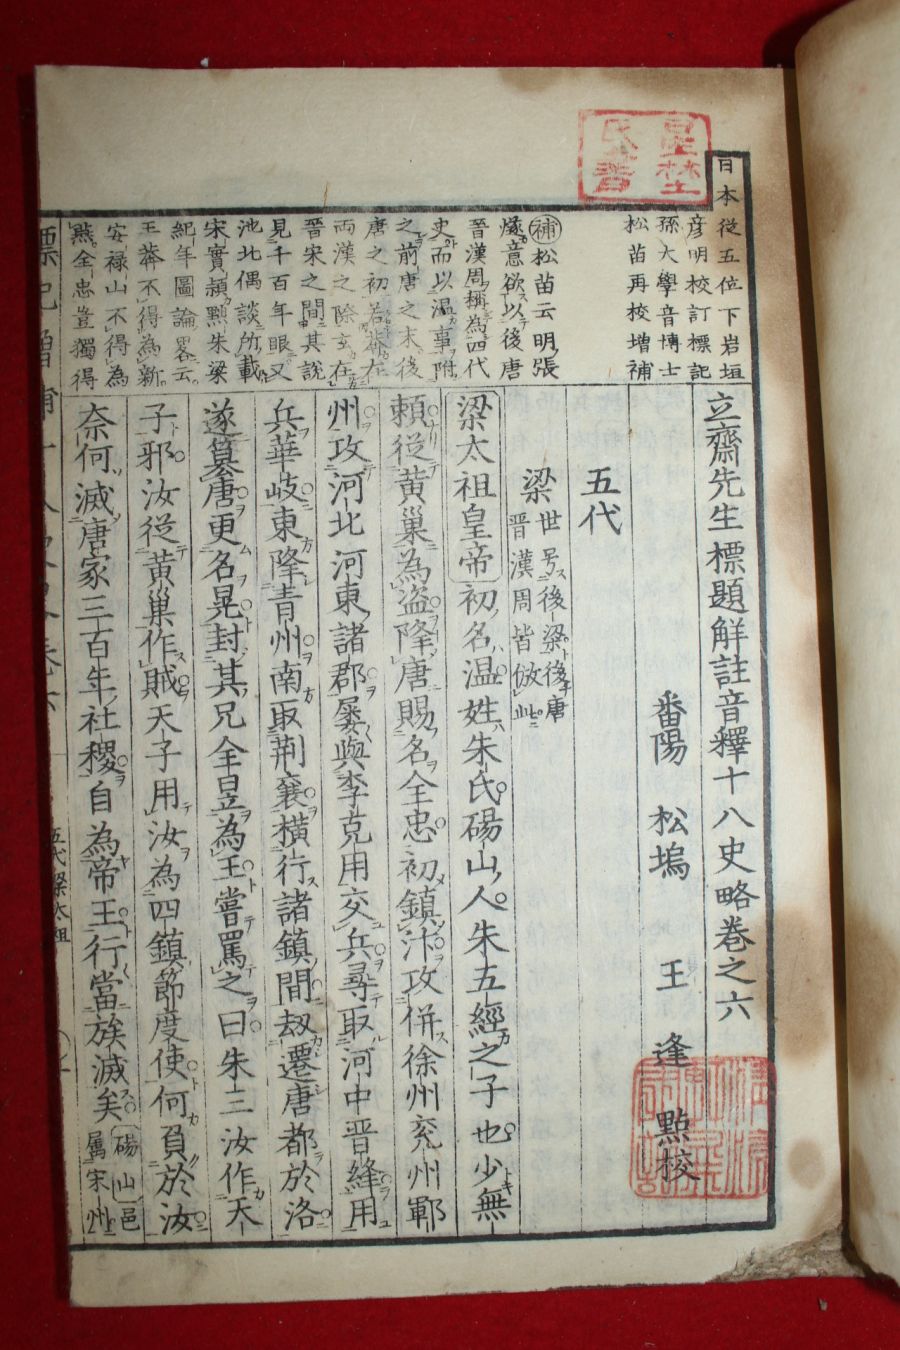 立齋先生標題解註音釋十八史略卷之六
番陽 松塢 王逢 㸃校
五代
梁世号後梁後唐
晉漢周皆倣此
梁太祖皇帝初名温姓朱氏碭山人朱五經之子也少無
頼從黄巢為盗降唐賜名全忠初鎮汴攻併徐州兖州鄆
州攻河北河東諸郡屡與李克用交兵尋取河中晋絳用
兵華岐東降青州南取荆襄横行諸鎮間劫遷唐都於洛
遂簒唐更名晃封其兄全昱為王嘗罵之曰朱三汝作天
子邪汝從黄巢作賊天子用汝為四鎮節度使何負於汝
奈何滅唐家三百年社稷自為帝王行當族滅矣碭山邑
屬宋州
日本從五位下岩垣
彦明校訂標記
孫大學音博士
松苗再校増補
補松苗云明張
燧意欲以後唐
晉漢周稱為四代
史而以温事附
之前唐之末後
唐之初若莽在
兩漢之際玄在
晉宋之間其説
見千百年眼又
池北偶談所載
宋實頴黜朱梁
紀年圖論畧云
王莽不得為新
安禄山不得為
燕全忠豈獨得
五代梁太祖